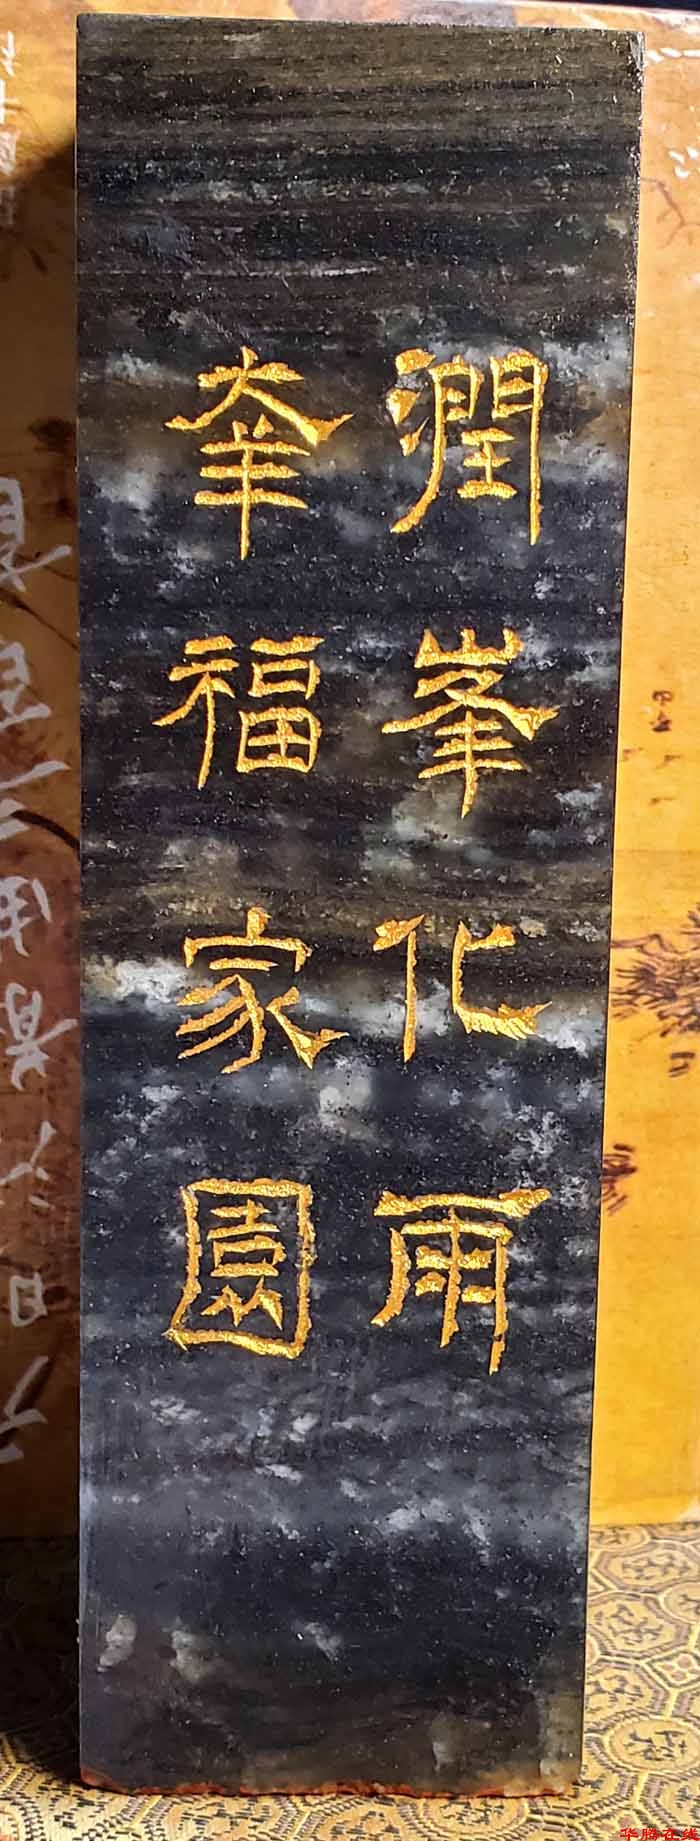 潤峯化雨
幸福家園
华腾在线